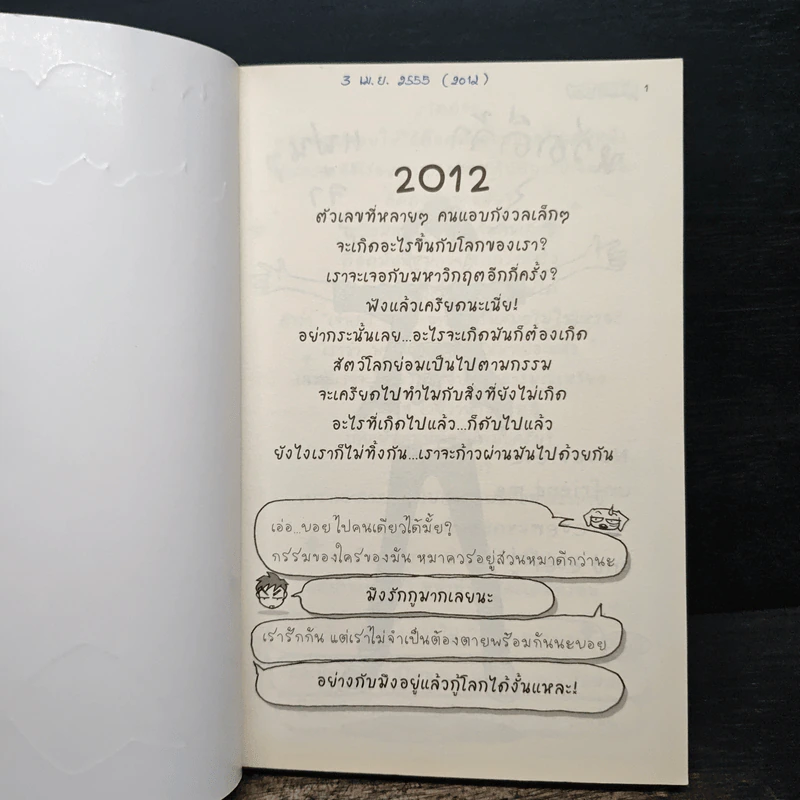 3 เม.ย. 2555 (2012)
1
2012
ตัวเลขที่หลายๆ คนแอบกังวลเล็กๆ
จะเกิดอะไรขึ้นกับโลกของเรา?
เราจะเจอกับมหาวิกฤตอีกกี่ครั้ง?
ฟังแล้วเครียดนะเนี่ย!
อย่ากระนั้นเลย...อะไรจะเกิดมันก็ต้องเกิด
สัตว์โลกย่อมเป็นไปตามกรรม
จะเครียดไปทำไมกับสิ่งที่ยังไม่เกิด
อะไรที่เกิดไปแล้ว...ก็ดับไปแล้ว
ยังไงเราก็ไม่ทิ้งกัน...เราจะก้าวผ่านมันไปด้วยกัน
เอ่อ...บอย ไปคนเดียวได้มั้ย?
กรรมของใครของมัน หมาควรอยู่ส่วนหมาดีกว่านะ
มึงรักกูมากเลยนะ
เรารักกัน แต่เราไม่จำเป็นต้องตายพร้อมกันนะบอย
อย่างกับมึงอยู่แล้วกู้โลกได้งั้นแหละ!